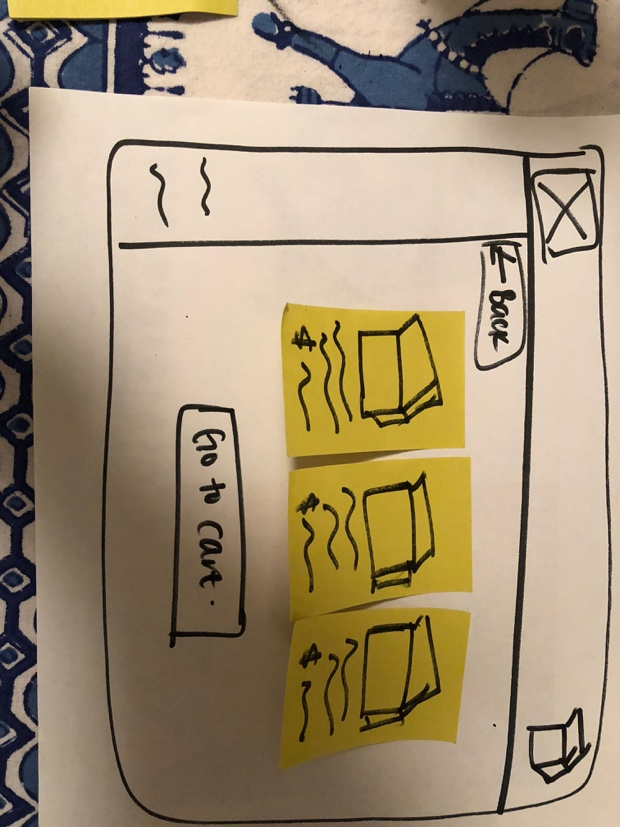 ← Back
$
$
$
Go to cart.